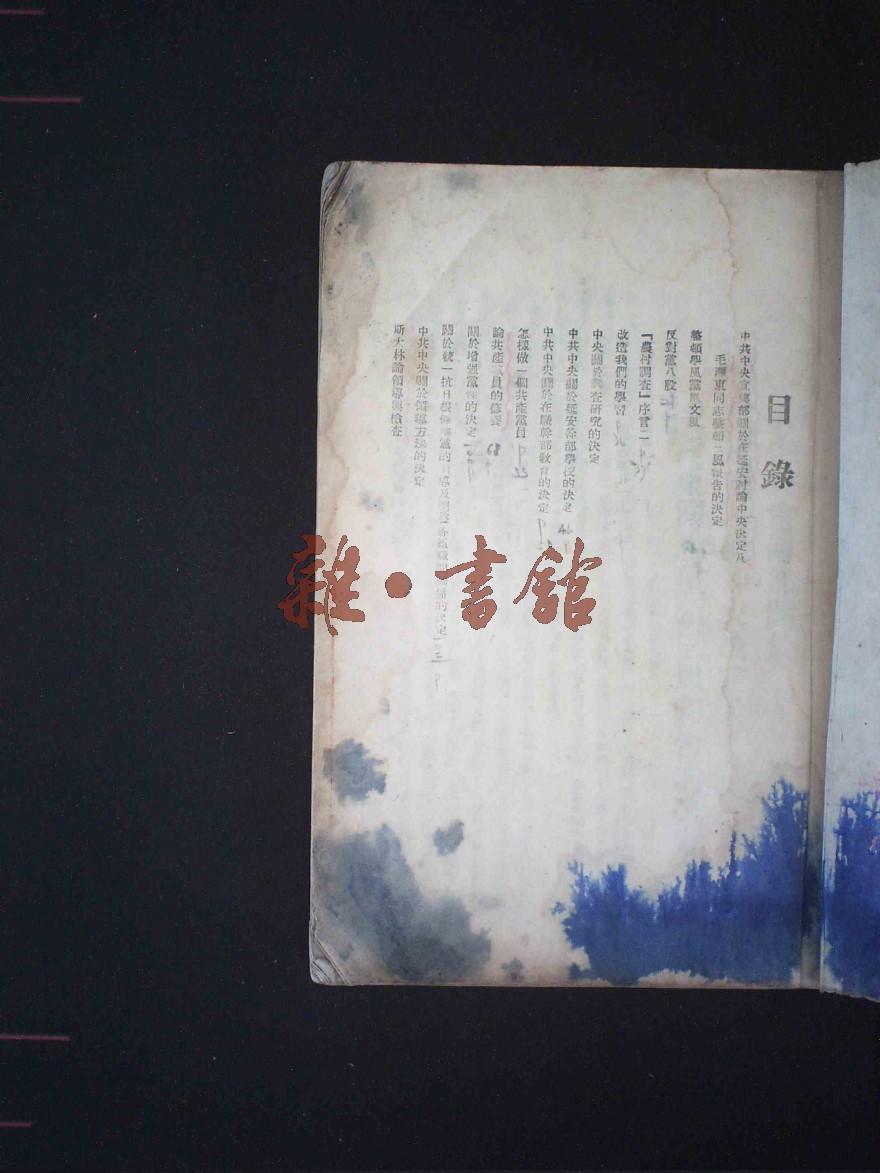 目錄
中共中央宣傳部關於在延安討論中央決定及
毛澤東同志整頓三風報告的決定
整頓學風黨風文風
反對黨八股
『農村調查』序言二
改造我們的學習
中央關於調查研究的決定
中共中央關於延安幹部學校的決定
中共中央關於在職幹部教育的決定
怎樣做一個共產黨員
論共產黨員的修養
關於增強黨性的決定
關於統一抗日根據地黨的領導及調整各組織間關係的決定
中共中央關於領導方法的決定
斯大林論領導與檢查
雜·書館